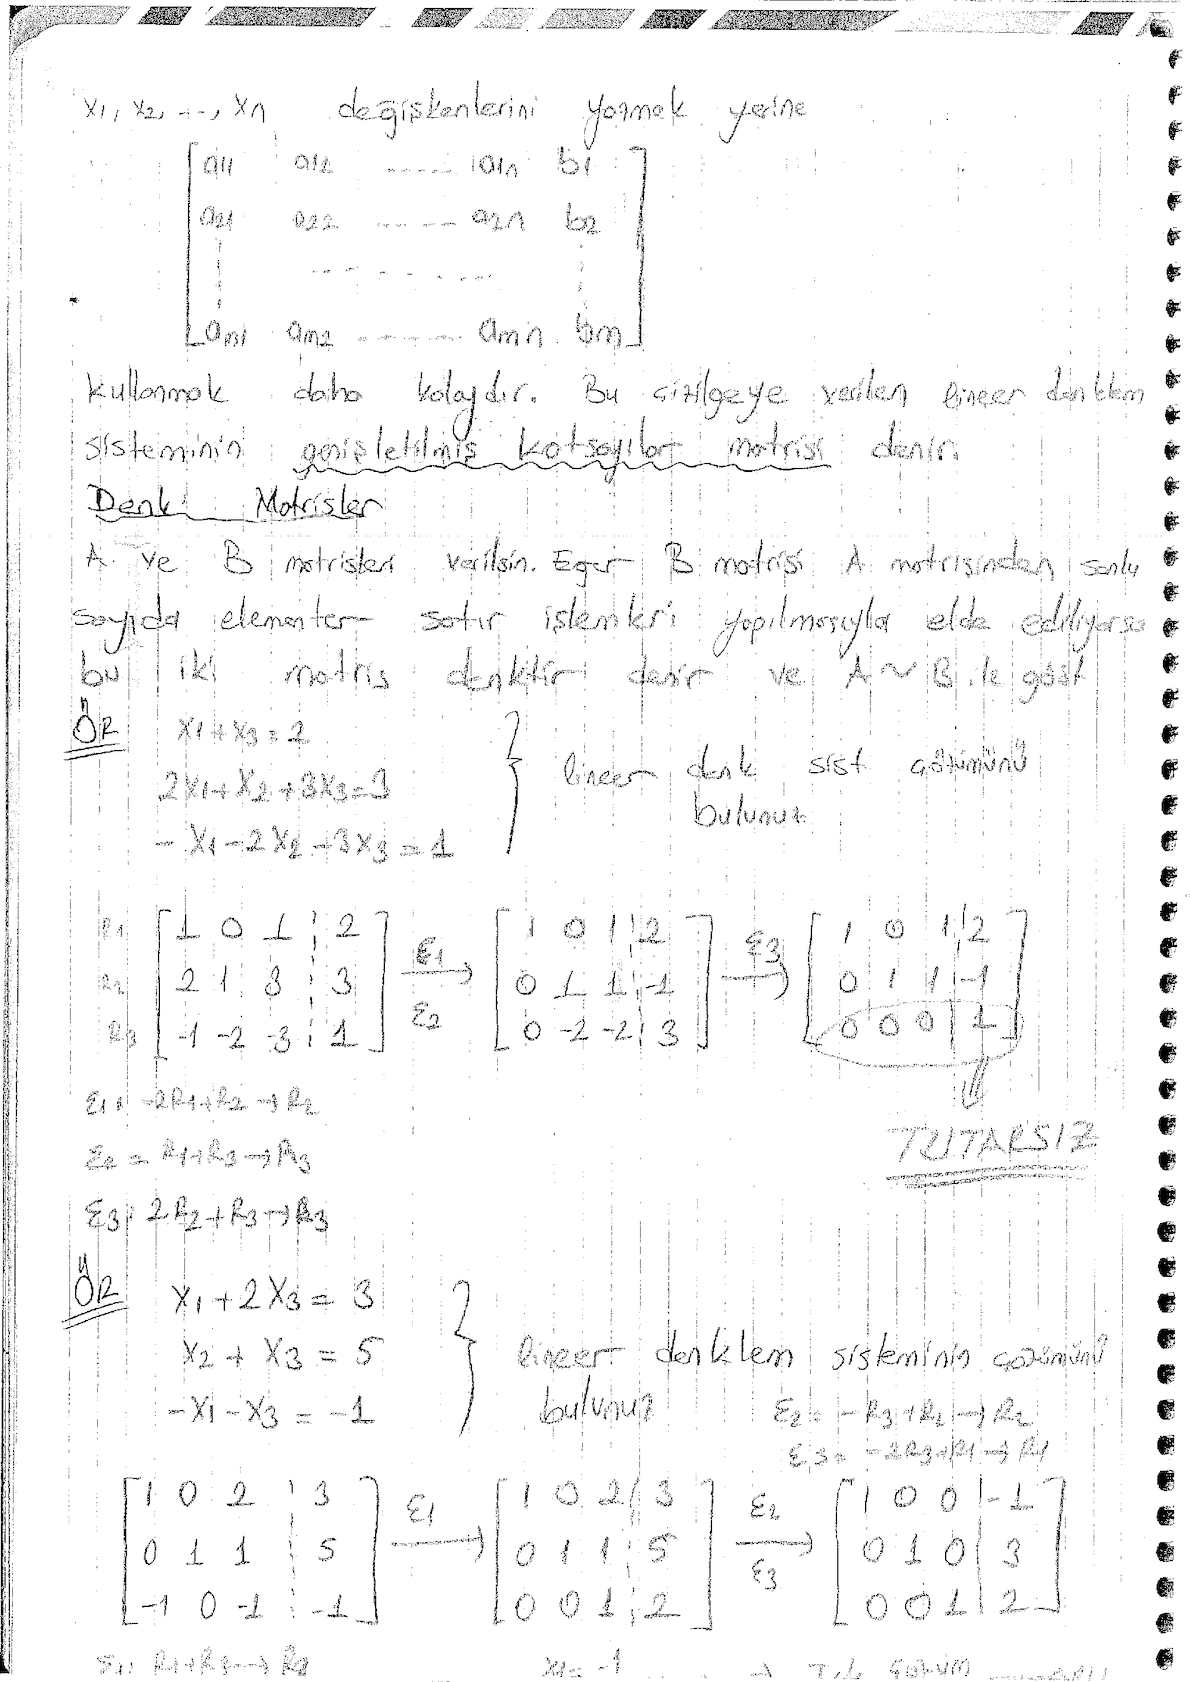 x1, x2, ..., xn değişkenlerini yazmak yerine
[ a11 a12 ...... a1n b1 ]
[ a21 a22 ...... a2n b2 ]
[ ⋮ ........ ⋮ ]
[ am1 am2 ...... amn bm ]
kullanmak daha kolaydır. Bu çizilgeye verilen lineer denklem
sisteminin genişletilmiş katsayılar matrisi denir.
Denk Matrisler
A ve B matrisleri verilsin. Eğer B matrisi A matrisinden sonlu
sayıda elementer satır işlemleri yapılmasıyla elde ediliyorsa
bu iki matris denktir denir ve A ~ B ile göst
ÖR x1 + x3 = 2
2x1 + x2 + 3x3 = 3
-x1 - 2x2 - 3x3 = 1
} lineer denk sist çözümünü
bulunuz
R1 [ 1 0 1 | 2 ] ε1 → [ 1 0 1 | 2 ] ε3 → [ 1 0 1 | 2 ]
R2 [ 2 1 3 | 3 ] ε2 [ 0 1 1 | -1 ] [ 0 1 1 | -1 ]
R3 [ -1 -2 -3 | 1 ] [ 0 -2 -2 | 3 ] [ 0 0 0 | 1 ]
⇓
ε1: -2R1+R2 → R2
TUTARSIZ
ε2 = R1+R3 → R3
ε3: 2R2+R3 → R3
ÖR x1 + 2x3 = 3
x2 + x3 = 5
-x1 - x3 = -1
} lineer denklem sisteminin çözümünü
bulunuz
ε2 = -R3+R2 → R2
ε3 = -2R3+R1 → R1
[ 1 0 2 | 3 ] ε1 → [ 1 0 2 | 3 ] ε2 → [ 1 0 0 | -1 ]
[ 0 1 1 | 5 ] [ 0 1 1 | 5 ] ε3 [ 0 1 0 | 3 ]
[ -1 0 -1 | -1 ] [ 0 0 1 | 2 ] [ 0 0 1 | 2 ]
ε1: R1+R3 → R3 x1 = -1 → Tek çözüm